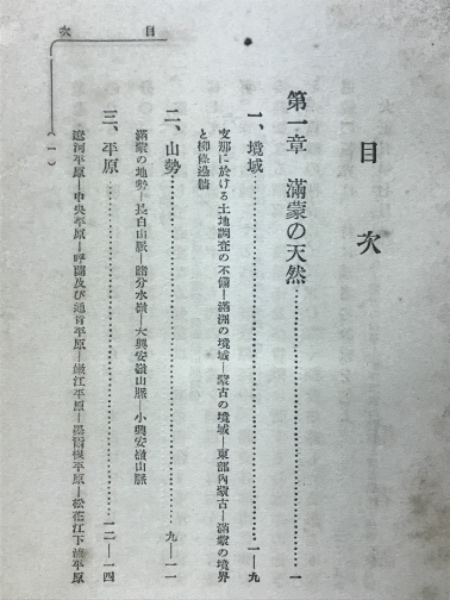 目次
目次
第一章 滿蒙の天然…………一
一、境域…………一―九
支那に於ける土地調査の不備―滿洲の境域―蒙古の境域―東部內蒙古―滿蒙の境界
と柳條邊牆
二、山勢…………九―一一
滿蒙の地勢―長白山脈―諸分水嶺―大興安嶺山脈―小興安嶺山脈
三、平原…………一二―一四
遼河平原―中央平原―呼蘭及び通肯平原―嫩江平原―墨爾根平原―松花江下流平原
(一)